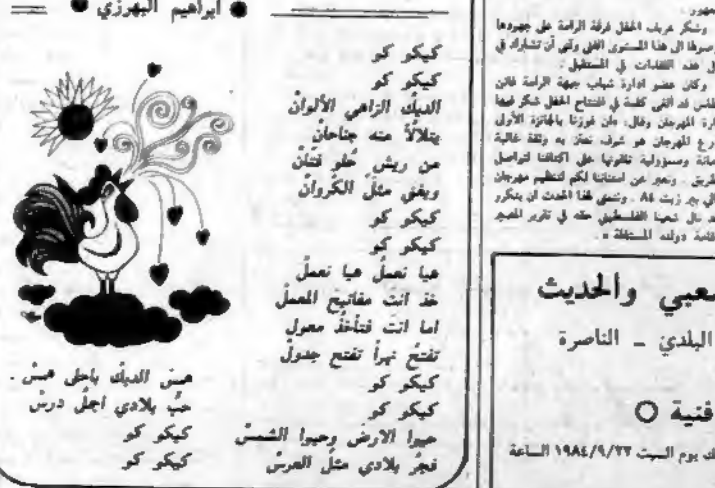 ابراهيم البهرزي
كيكو كو
كيكو كو
الديك الزاهي الألوان
يتلألأ منه جناحان
من ريش حلو فتان
ويغني مثل الكروان
كيكو كو
كيكو كو
هيا نعمل هيا نعمل
خذ انت مفاتيح المعمل
اما انت فتأخذ معول
تفتح نهراً تفتح جدول
كيكو كو
كيكو كو
حبوا الارض وحبوا الشمس
فجر بلادي مثل العرس
همس الديك باحلى همس .
حب بلادي اجمل درس
كيكو كو
كيكو كو
وشكر عريف الحفل فرقة الرامة على جهودها
هذا المستوى الفني
في هذه اللقاءات في المستقبل .
وكان عضو ادارة شباب جبهة الرامة
قد القى كلمة في افتتاح الحفل شكر فيها
المهرجان وقال: ان فوزنا بالجائزة الأولى
المهرجان هو شرف نعتز به وثقة غالية
ومسؤولية على اكتافنا لنواصل
امتناننا لكم لتنظيم مهرجان
بير زيت ٨٤ . هذا الحدث ان يتكرر
شعبنا الفلسطيني حقه في تقرير المصير
دولته المستقلة » .
والحديث
البلدي - الناصرة
فنية
يوم السبت ١٩٨٤/٩/٢٢ الساعة